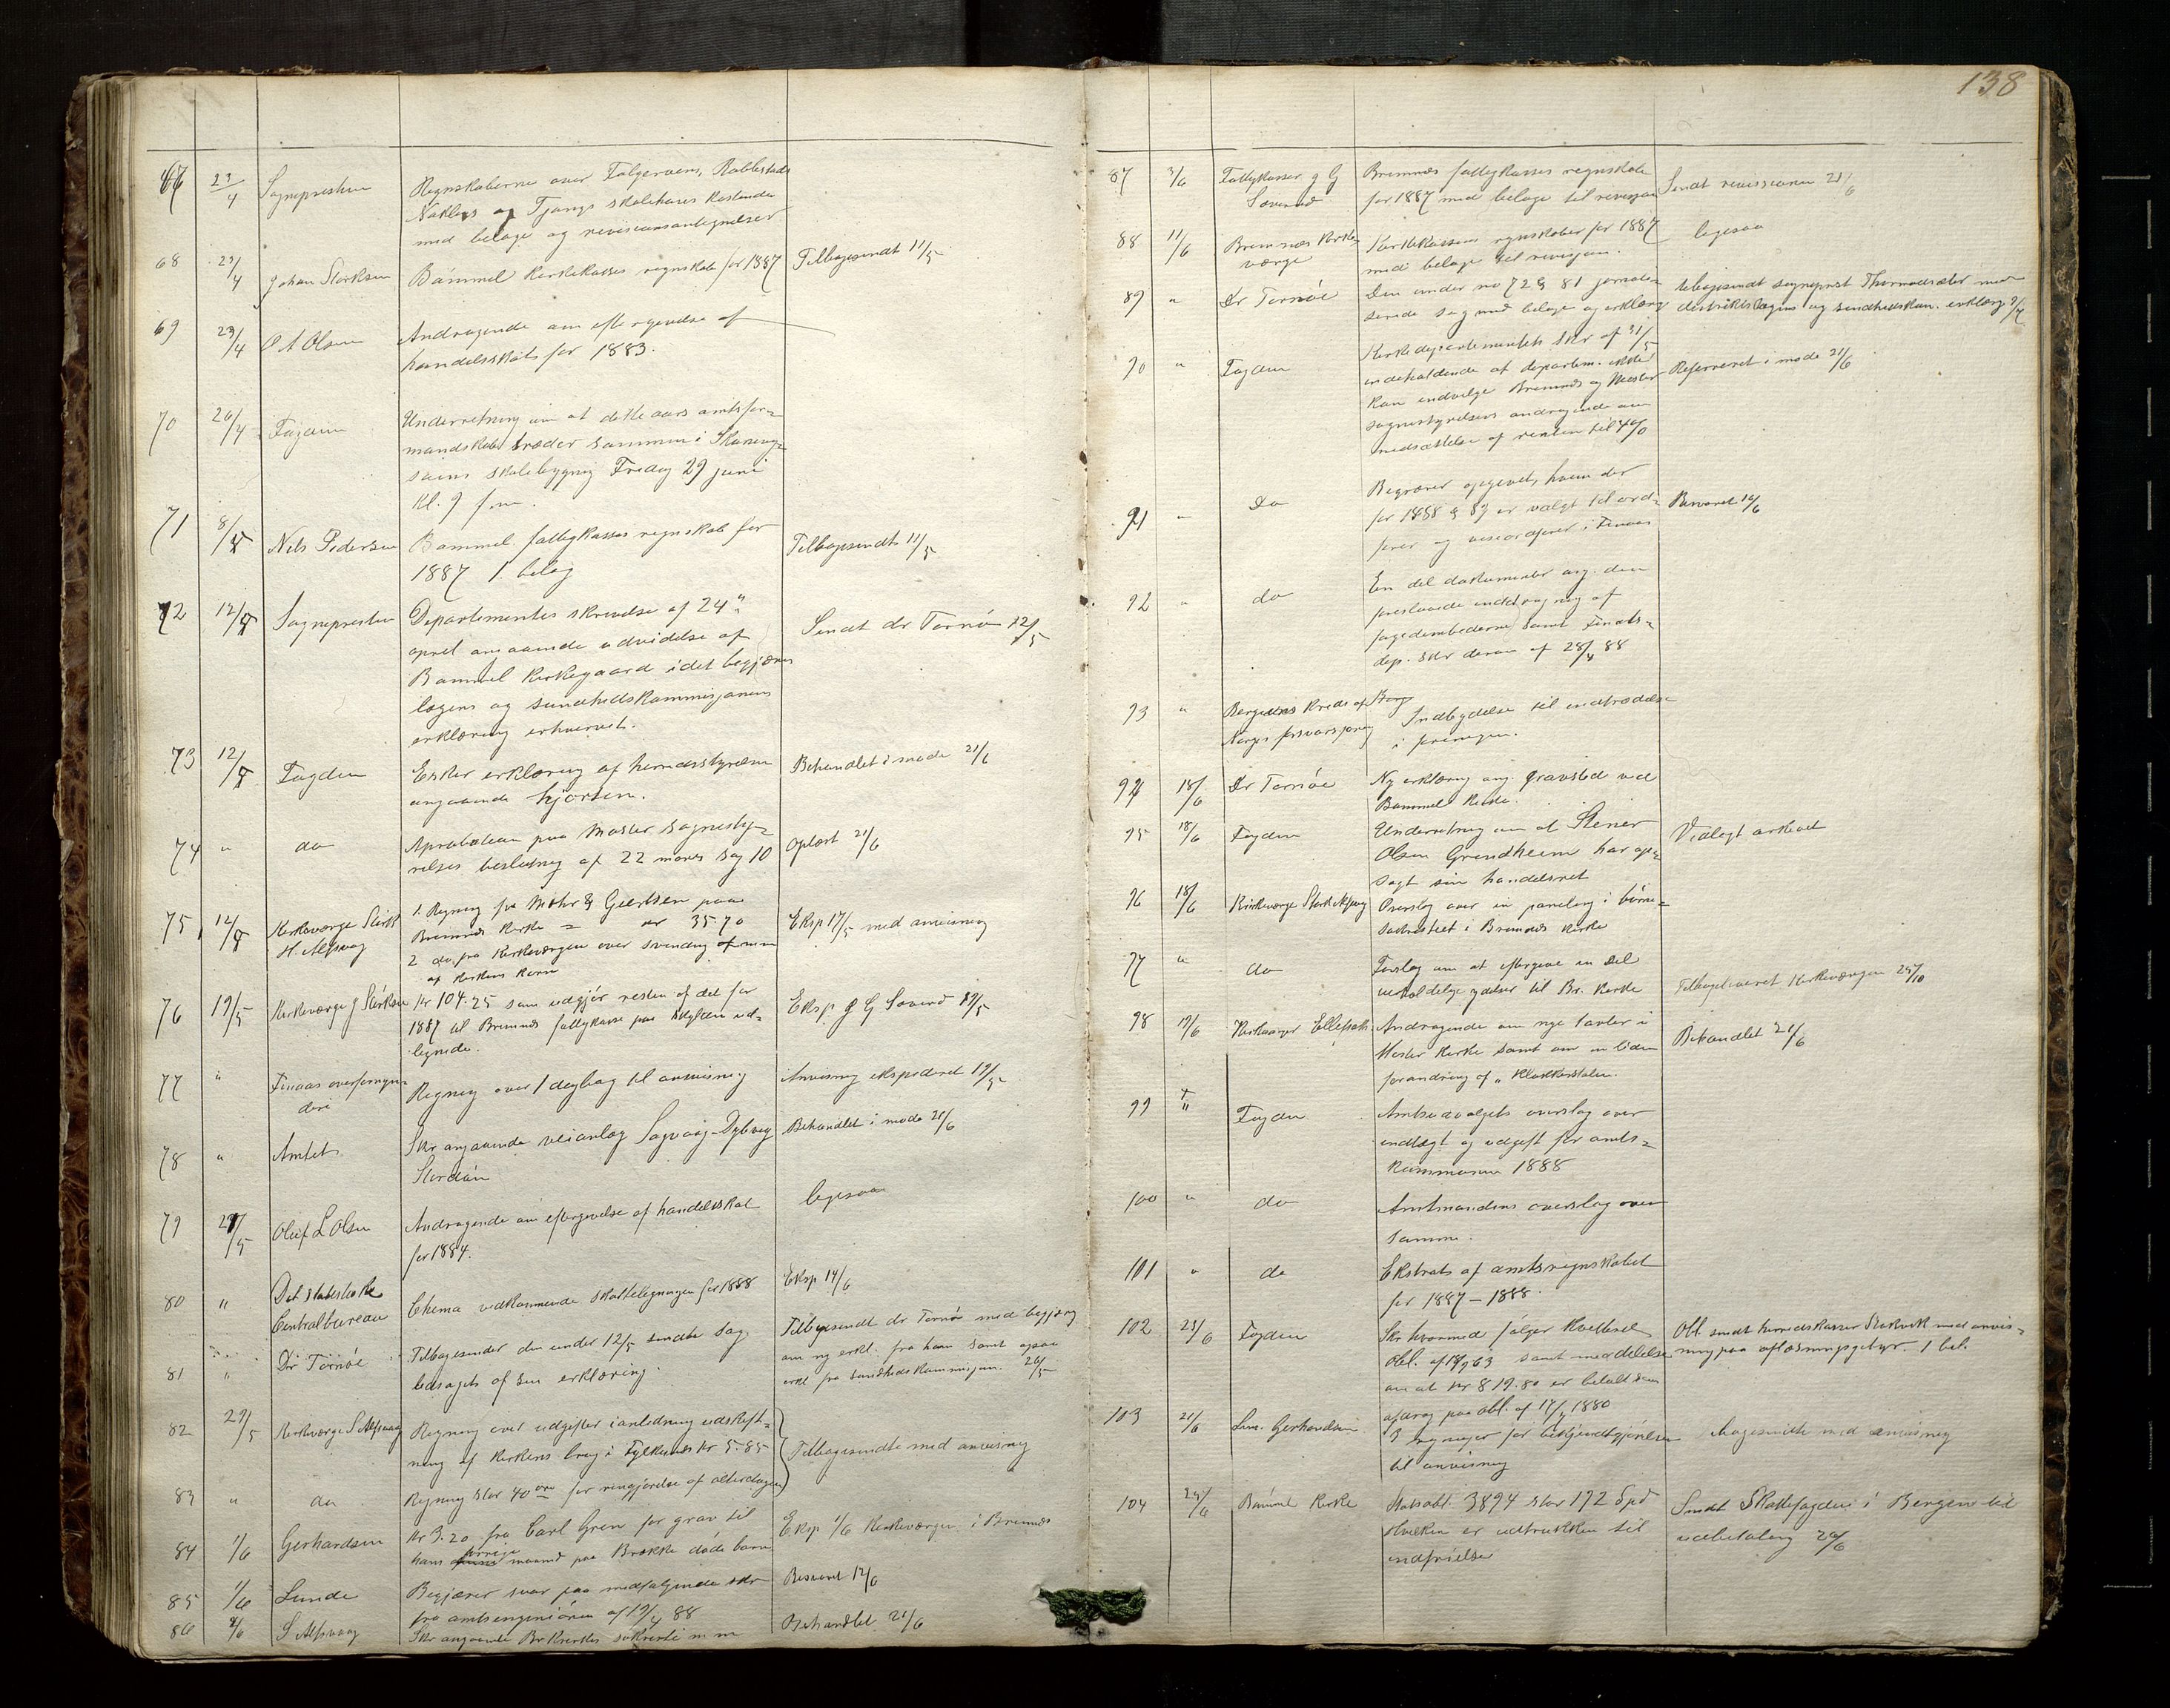 138
67 23/4 Sognepresten Regnskaberne over Folgerøens, Rabbesteds
Nøklings og Tjangs skolehuses kostende
med belage og revisionsantegnelser
68 23/4 Johan Størksen Bømmel kirkekasses regnskab for 1887 Tilbagesendt 11/5
69 23/4 O A Olsen Andragende om eftergivelse af
handelsskat for 1883.
70 26/4 Fogden Underretning om at dette aars amtsfor=
mandskab træder sammen i
skolebygning Fredag 29 juni
kl. 9 f.m.
71 8/5 Nils Pedersen Bømmel fattigkasses regnskab for
1887 1 belag Tilbagesendt 11/5
72 12/5 Sognepresten Departementets skrivelse af 24de
april angaaende udvidelse af
Bømmel Kirkegaard idet begjæres
lægens og sundhedskommisjonens
erklæring erhvervet. Sendt dr Tornøe 12/5
73 12/5 Fogden Esker erklæring af herredsstyrerne
angaaende hjorten. Behandlet i møde 21/6
74 " do Aprobation paa Moster sognesty=
relses beslutning af 22 marts sag 10 Oplæst 21/6
75 12/5 Kirkeværge Størk
H. Alfsvaag 1. Regning fra Mohr & Giertsen paa
Bremnes Kirke = kr 35.70
2 do fra Kirkeværgen over
af kirkens Eksp 17/5 med anvisning
76 19/5 Kirkeværge J Størksen Kr 104.25 som udgjør resten af det for
1887 til Bremnes fattigkasse paa ud=
lignede. Eksp J G Søverud 19/5
77 " Finaas overformyn=
deri Regning over 1 dagbog til anvisning Anvisning ekspederet 19/5
78 " Amtet Skr angaaende veianlæg Sagvaag-Dybvig
Stordøen Behandlet i møde 21/6
79 27/5 Oluf L Olsen Andragende om eftergivelse af handelsskat
for 1884. ligesaa
80 " Det statistiske
Centralbureau Skema vedkommende skatteligningen for 1888 Eksp 14/6
81 " Dr Tornøe Tilbagesender den under 12/5 sendte sag
ledsaget af sin erklæring. Tilbagesendt dr Tornøe med begjæring
om ny erkl. fra ham samt ogsaa
erkl fra sundhedskommisjon. 26/5
82 29/5 Kirkeværge S Alfsvaag Regning over udgifter i anledning udskift=
ning af kirkens brug i Fylkesnes kr 5.85 Tilbagesendte med anvisning
83 " do Regning stor 40 øre for rengjørelse af alterdugen
84 1/6 Gerhardsen Kr 3.20 fra Carl Gren for grav til
hans forrige maaned paa Brække døde barn Eksp 1/6 Kirkeværgen i Bremnes
85 1/6 Lunde Begjærer svar paa medfølgende skr
fra amtsingeniøren af 19/4 88 Besvaret 12/6
86 9/6 S Alfsvaag Skr angaaende Br Kirkes sakristi m m Behandlet 21/6
87 3/6 Fattigkasser J G
Søverud Bremnes fattigkasses regnskab
for 1887 med belage til revisjon Sendt revisionen 21/6
88 11/6 Bremnes Kirke=
værge Kirkekassens regnskaber for 1887
med belage til revisjon. ligesaa
89 " Dr Tornøe Den under no 72 & 81 journali=
serede sag med belage og erklæring tilbagesendt sogneprest Thormodsæter med
distriktslægens og sundhedskom. erklæring
90 " Fogden Kirkedepartementets skr af 31/5
indeholdende at departem. ikke
kan indvilge Bremnes og Moster
sognestyrelsers andragende om
nedsættelse af renten til 4% Refereret i møde 21/6
91 " Do Begjærer opgivet, hvem der
for 1888 & 89 er valgt til ord=
fører og viseordfører i Finaas Besvaret 16/6
92 " do En del dokumenter ang. den
foreslaaede inddragning af
fogedembederne samt Finants=
dep. skr derom af 28/4 88
93 " Bergens Kreds af
Norges forsvarsforening Indbydelse til indtrædelse
i foreningen.
94 18/6 Dr Tornøe Ny erklæring ang. gravsted ved
Bømmel Kirke.
95 18/6 Fogden Underretning om at Stener
Olsen Grindheim har op=
sagt sin handelsret Vedlagt arkivet
96 18/6 Kirkeværge Størk Alfsvaag Overslag over en paneling i børne=
sakristiet i Bremnes Kirke
97 " do Forslag om at eftergive en del
uerholdelige ydelser til Br. Kirke Tilbageleveret Kirkeværgen 29/10
98 19/6 Kirkeværger Andragende om nye tavler i
Moster Kirke samt om en liden
forandring af "Klokkerstolen. Behandlet 21/6
99 " Fogden Amtsudvalgets overslag over
indtægt og udgift for amts=
kommunen 1888
100 " do Amtmandens overslag over
samme.
101 " do Ekstrakt af amtsregnskabet
for 1887 – 1888.
102 23/6 Fogden Skr hvormed følger kvitteret
obl. af 63 samt meddelelse
om at kr 819.80 er betalt som
afdrag paa obl. af 17/9 1880 Obl. sendt herredskasser med anvis=
ning paa aflæsningsgebyr. 1 bel.
103 21/6 Lens. Gerhardsen 3 regninger for bekjendtgjørelser
til anvisning tilbagesendte med anvisning
104 24/6 Bømmel Kirke Statsobl. 3894 stor 192 Spd
hvilken er udtrukken til
indfrielse Sendt Skattefogden i Bergen til
udbetaling 26/6